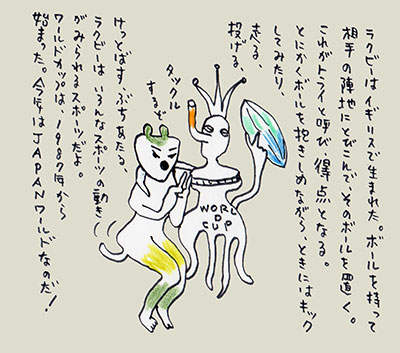 ラグビーはイギリスで生まれた。ボールを持って
相手の陣地にとびこんで そのボールを置く。
これがトライと呼び 得点となる。
とにかくボールを抱きしめながら ときにはキック
してみたり、
走る、
投げる、
タックル
するぞ
けっとばす、ぶちあたる、
ラグビーは いろんなスポーツの動き
がみられるスポーツだよ。
ワールドカップは、1987年から
始まった。今年はJAPANワールドなのだ!
WORL
D
CUP